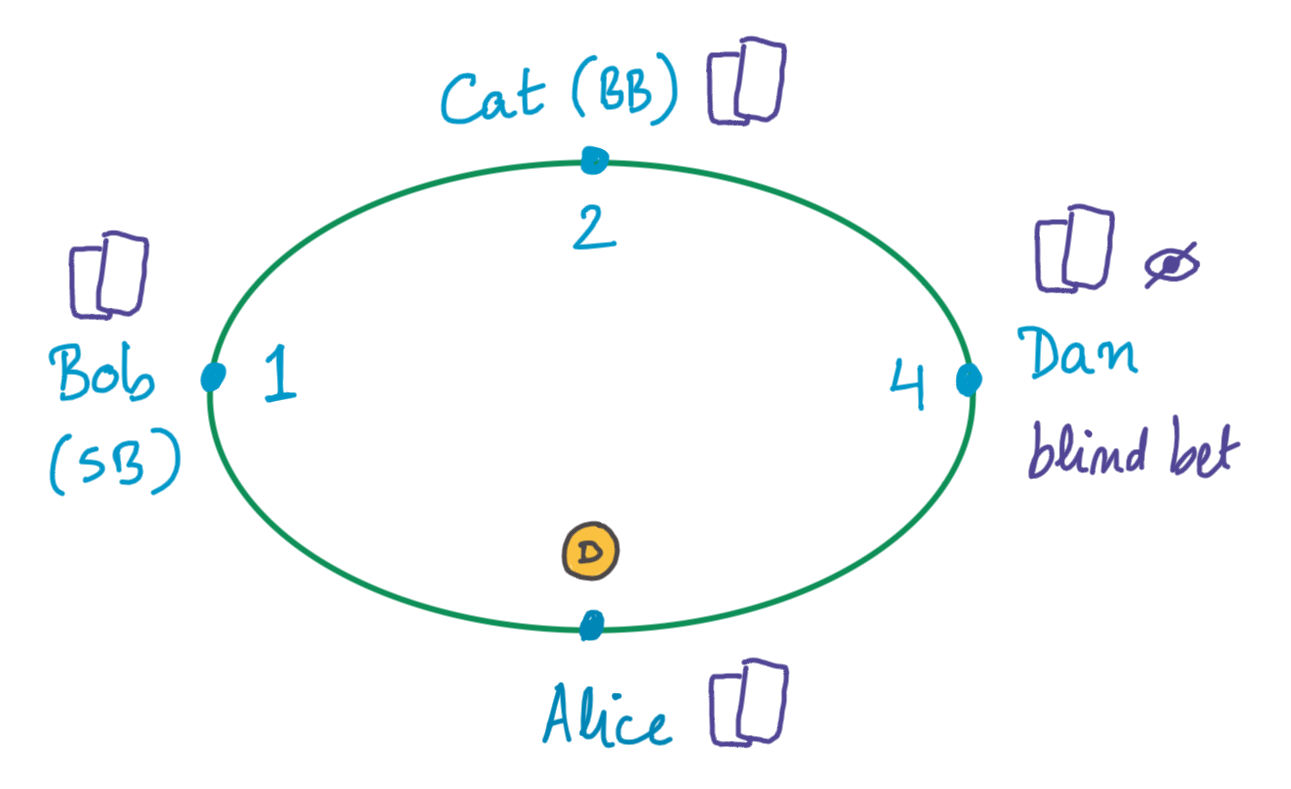 Cat (BB)
2
Bob
(SB)
1
4
Dan
blind bet
D
Alice